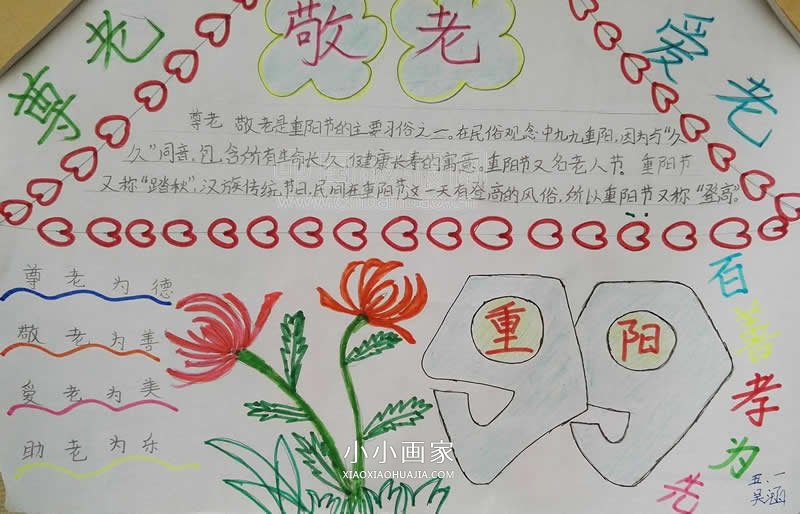 尊老
敬老
爱老
尊老 敬老是重阳节的主要习俗之一。在民俗观念中九九重阳,因为与“久
久”同音,包含有生命长久、健康长寿的寓意。重阳节又名老人节。重阳节
又称“踏秋”,汉族传统节日,民间在重阳节这一天有登高的风俗,所以重阳节又称“登高”。
尊老为德
敬老为善
爱老为美
助老为乐
重阳
百善孝为先
五、一
吴涵
小小画家
XIAOXIAOHUAJIA.COM